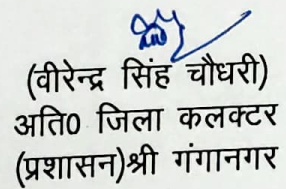 (वीरेन्द्र सिंह चौधरी)
अति0 जिला कलक्टर
(प्रशासन)श्री गंगानगर